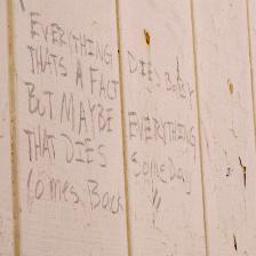 EVERYTHING DIES BABY
THATS A FACT
BUT MAYBE EVERYTHING
THAT DIES SOMEDAY
Comes Back !!